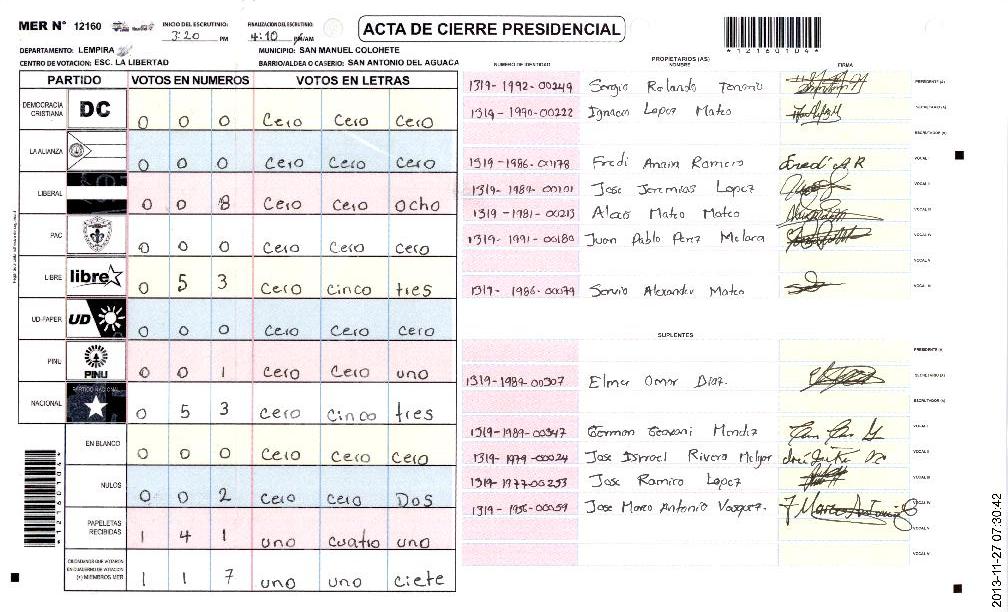 MER Nº 12160 INICIO DEL ESCRUTINIO: 3:20 PM FINALIZACION DEL ESCRUTINIO: 4:10 PM/AM
ACTA DE CIERRE PRESIDENCIAL
*12160104*
DEPARTAMENTO: LEMPIRA MUNICIPIO: SAN MANUEL COLOHETE
CENTRO DE VOTACION: ESC. LA LIBERTAD BARRIO/ALDEA O CASERIO: SAN ANTONIO DEL AGUACA
PARTIDO VOTOS EN NUMEROS VOTOS EN LETRAS
DEMOCRACIA CRISTIANA DC 0 0 0 Cero Cero Cero
LA ALIANZA 0 0 0 Cero Cero Cero
LIBERAL 0 0 8 Cero Cero Ocho
PAC 0 0 0 Cero Cero Cero
LIBRE libre 0 5 3 Cero cinco tres
UD-FAPER UD 0 0 0 Cero Cero Cero
PINU PINU 0 0 1 Cero Cero uno
NACIONAL PARTIDO NACIONAL 0 5 3 Cero Cinco tres
EN BLANCO 0 0 0 Cero Cero Cero
NULOS 0 0 2 Cero Cero Dos
PAPELETAS RECIBIDAS 1 4 1 uno cuatro uno
CIUDADANOS QUE VOTARON EN CUADERNO DE VOTACION (+) MIEMBROS MER 1 1 7 uno uno ciete
*12160104*
PROPIETARIOS (AS)
NUMERO DE IDENTIDAD NOMBRE FIRMA
1319-1992-00249 Sergio Rolando PRESIDENTE (A)
1319-1990-00222 Ignacio Lopez Mateo SECRETARIO (A)
ESCRUTADOR (A)
1319-1986-00178 Fredi Anain Romero Fredi A R VOCAL I
1319-1989-00101 Jose Jeremias Lopez VOCAL II
1319-1981-00213 Mateo Mateo VOCAL III
1319-1991-00180 Juan Pablo Perez Melara VOCAL IV
VOCAL V
1319-1986-00079 Servio Alexander Mateo VOCAL VI
SUPLENTES
PRESIDENTE (A)
1319-1989-00307 Elmer Omar Diaz. SECRETARIO (A)
ESCRUTADOR (A)
1319-1989-00347 German Geovani Mendez VOCAL I
1319-1979-00024 Jose Ismael Rivera Melgar VOCAL II
1319-1977-00253 Jose Ramiro Lopez VOCAL III
1319-1956-00059 Jose Marco Antonio Vasquez. Marco Antonio VOCAL IV
VOCAL V
VOCAL VI
2013-11-27 07:30:42